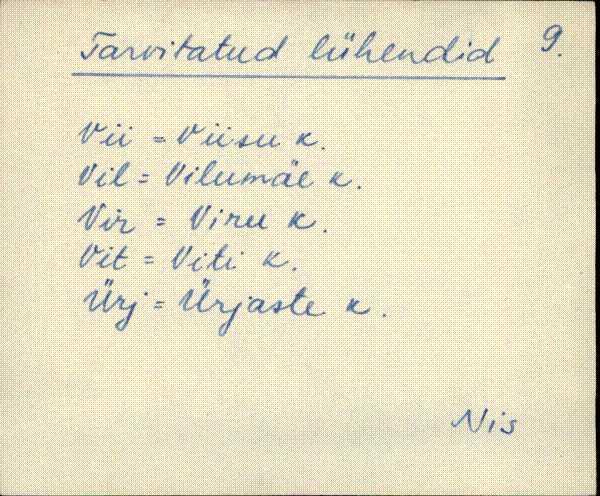 Tarvitatud lühendid 9.
Vii = Viisu k.
Vil = Vilumäe k.
Vir = Viru k.
Vit = Viti k.
Ürj = Ürjaste k.
Nis